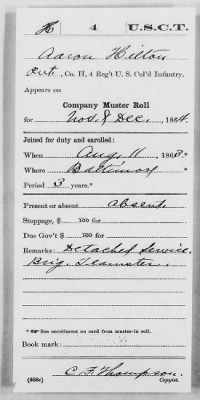 H 4 U.S.C.T.
Aaron Hilton
Pvt., Co. H, 4 Reg't U. S. Col'd Infantry.
Appears on
Company Muster Roll
for Nov. & Dec., 1864.
Joined for duty and enrolled:
When Aug. 11, 1863.*
Where Baltimore
Period 3 years.*
Present or absent absent.
Stoppage, $ 100 for
Due Gov't $ 100 for
Remarks: Detached Service.
Brig. Teamster.
* See enrollment on card from muster-in roll.
Book mark:
C. F. Thompson.
(858c) Copyist.